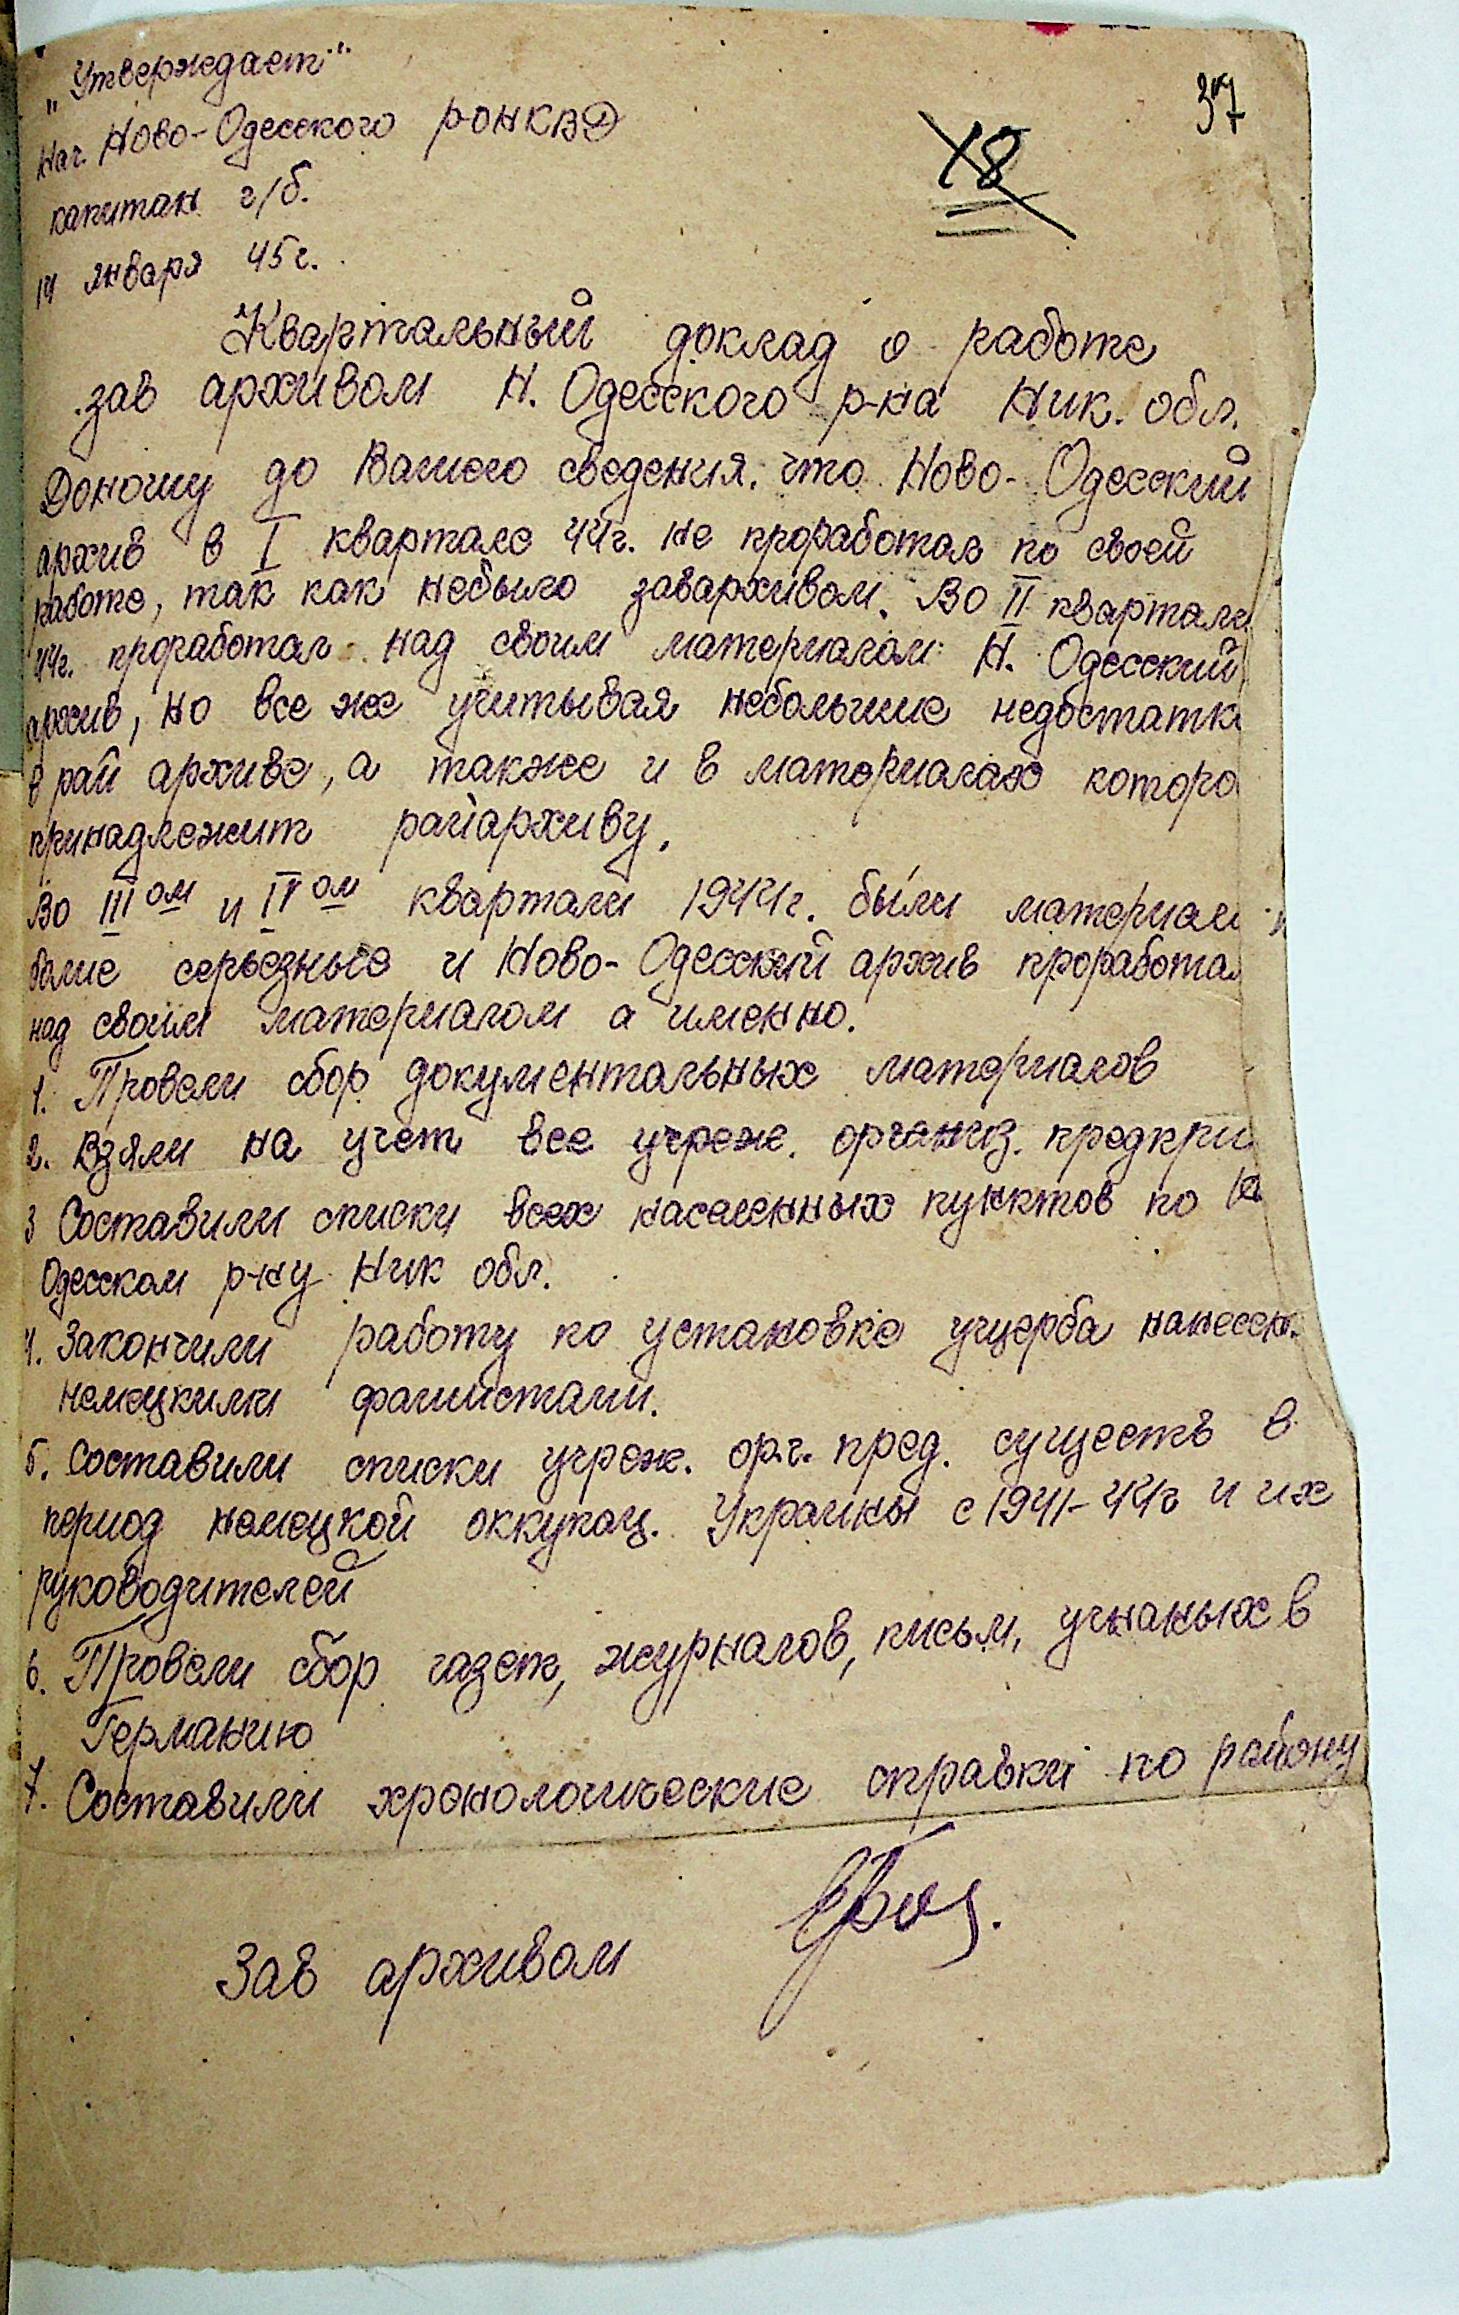 „Утверждает"
37
18
Нач. Ново-Одесского РОНКВД
капитан г/б.
14 января 45г.
Квартальный доклад о работе
зав архивом Н. Одесского р-на Ник. обл.
Доношу до Вашего сведения, что Ново-Одесский
архив в I квартале 44г. не проработал по своей
работе, так как небыло заварживом. Во II квартале
44г. проработал над своим материалом Н. Одесский
архив, но все же учитывая небольшие недостатк
в рай архиве, а также и в материалах которо
принадлежит райархиву.
Во III ом и IV ом квартали 1944г. были материал
более серьезные и Ново-Одесский архив проработал
над своим материалом а именно.
1. Провели сбор документальных материалов
2. Взяли на учет все учреж. организ. предпри
3 Составили списки всех населенных пунктов по
Одесском р-ну Ник обл.
4. Закончили работу по установке ущерба нанесен.
немецкими фашистами.
5. Составили списки учреж. орг. пред. существ в
период немецкой оккупац. Украины с 1941-44г и их
руководителей
6. Провели сбор газет, журналов, писем, угнаных в
Германию
7. Составили хронологические справки по району
Зав архивом